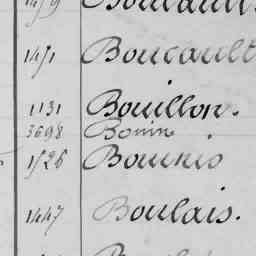 1471 Boucault
1131 Bouillon.
3698 Bonin
1526 Bounis
1447 Boulais.